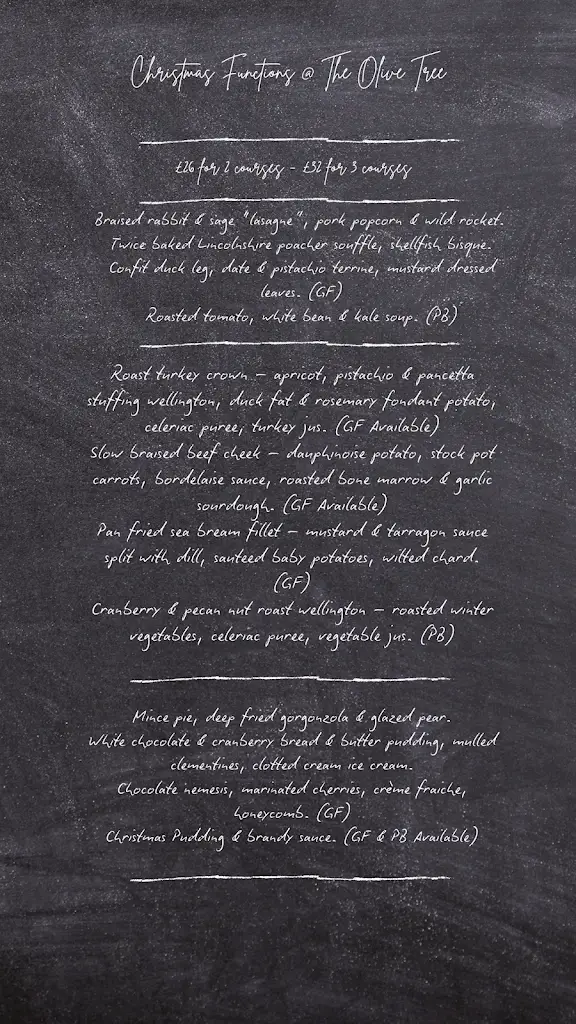 Christmas Functions @ The Olive Tree
£26 for 2 courses - £32 for 3 courses
Braised rabbit & sage "lasagne", pork popcorn & wild rocket.
Twice baked Lincolnshire poacher souffle, shellfish bisque.
Confit duck leg, date & pistachio terrine, mustard dressed
leaves. (GF)
Roasted tomato, white bean & kale soup. (PB)
Roast turkey crown – apricot, pistachio & pancetta
stuffing wellington, duck fat & rosemary fondant potato,
celeriac puree, turkey jus. (GF Available)
Slow braised beef cheek – dauphinoise potato, stock pot
carrots, bordelaise sauce, roasted bone marrow & garlic
sourdough. (GF Available)
Pan fried sea bream fillet – mustard & tarragon sauce
split with dill, sauteed baby potatoes, wilted chard.
(GF)
Cranberry & pecan nut roast wellington – roasted winter
vegetables, celeriac puree, vegetable jus. (PB)
Mince pie, deep fried gorgonzola & glazed pear.
White chocolate & cranberry bread & butter pudding, mulled
clementines, clotted cream ice cream.
Chocolate nemesis, marinated cherries, crème fraiche,
honeycomb. (GF)
Christmas Pudding & brandy sauce. (GF & PB Available)